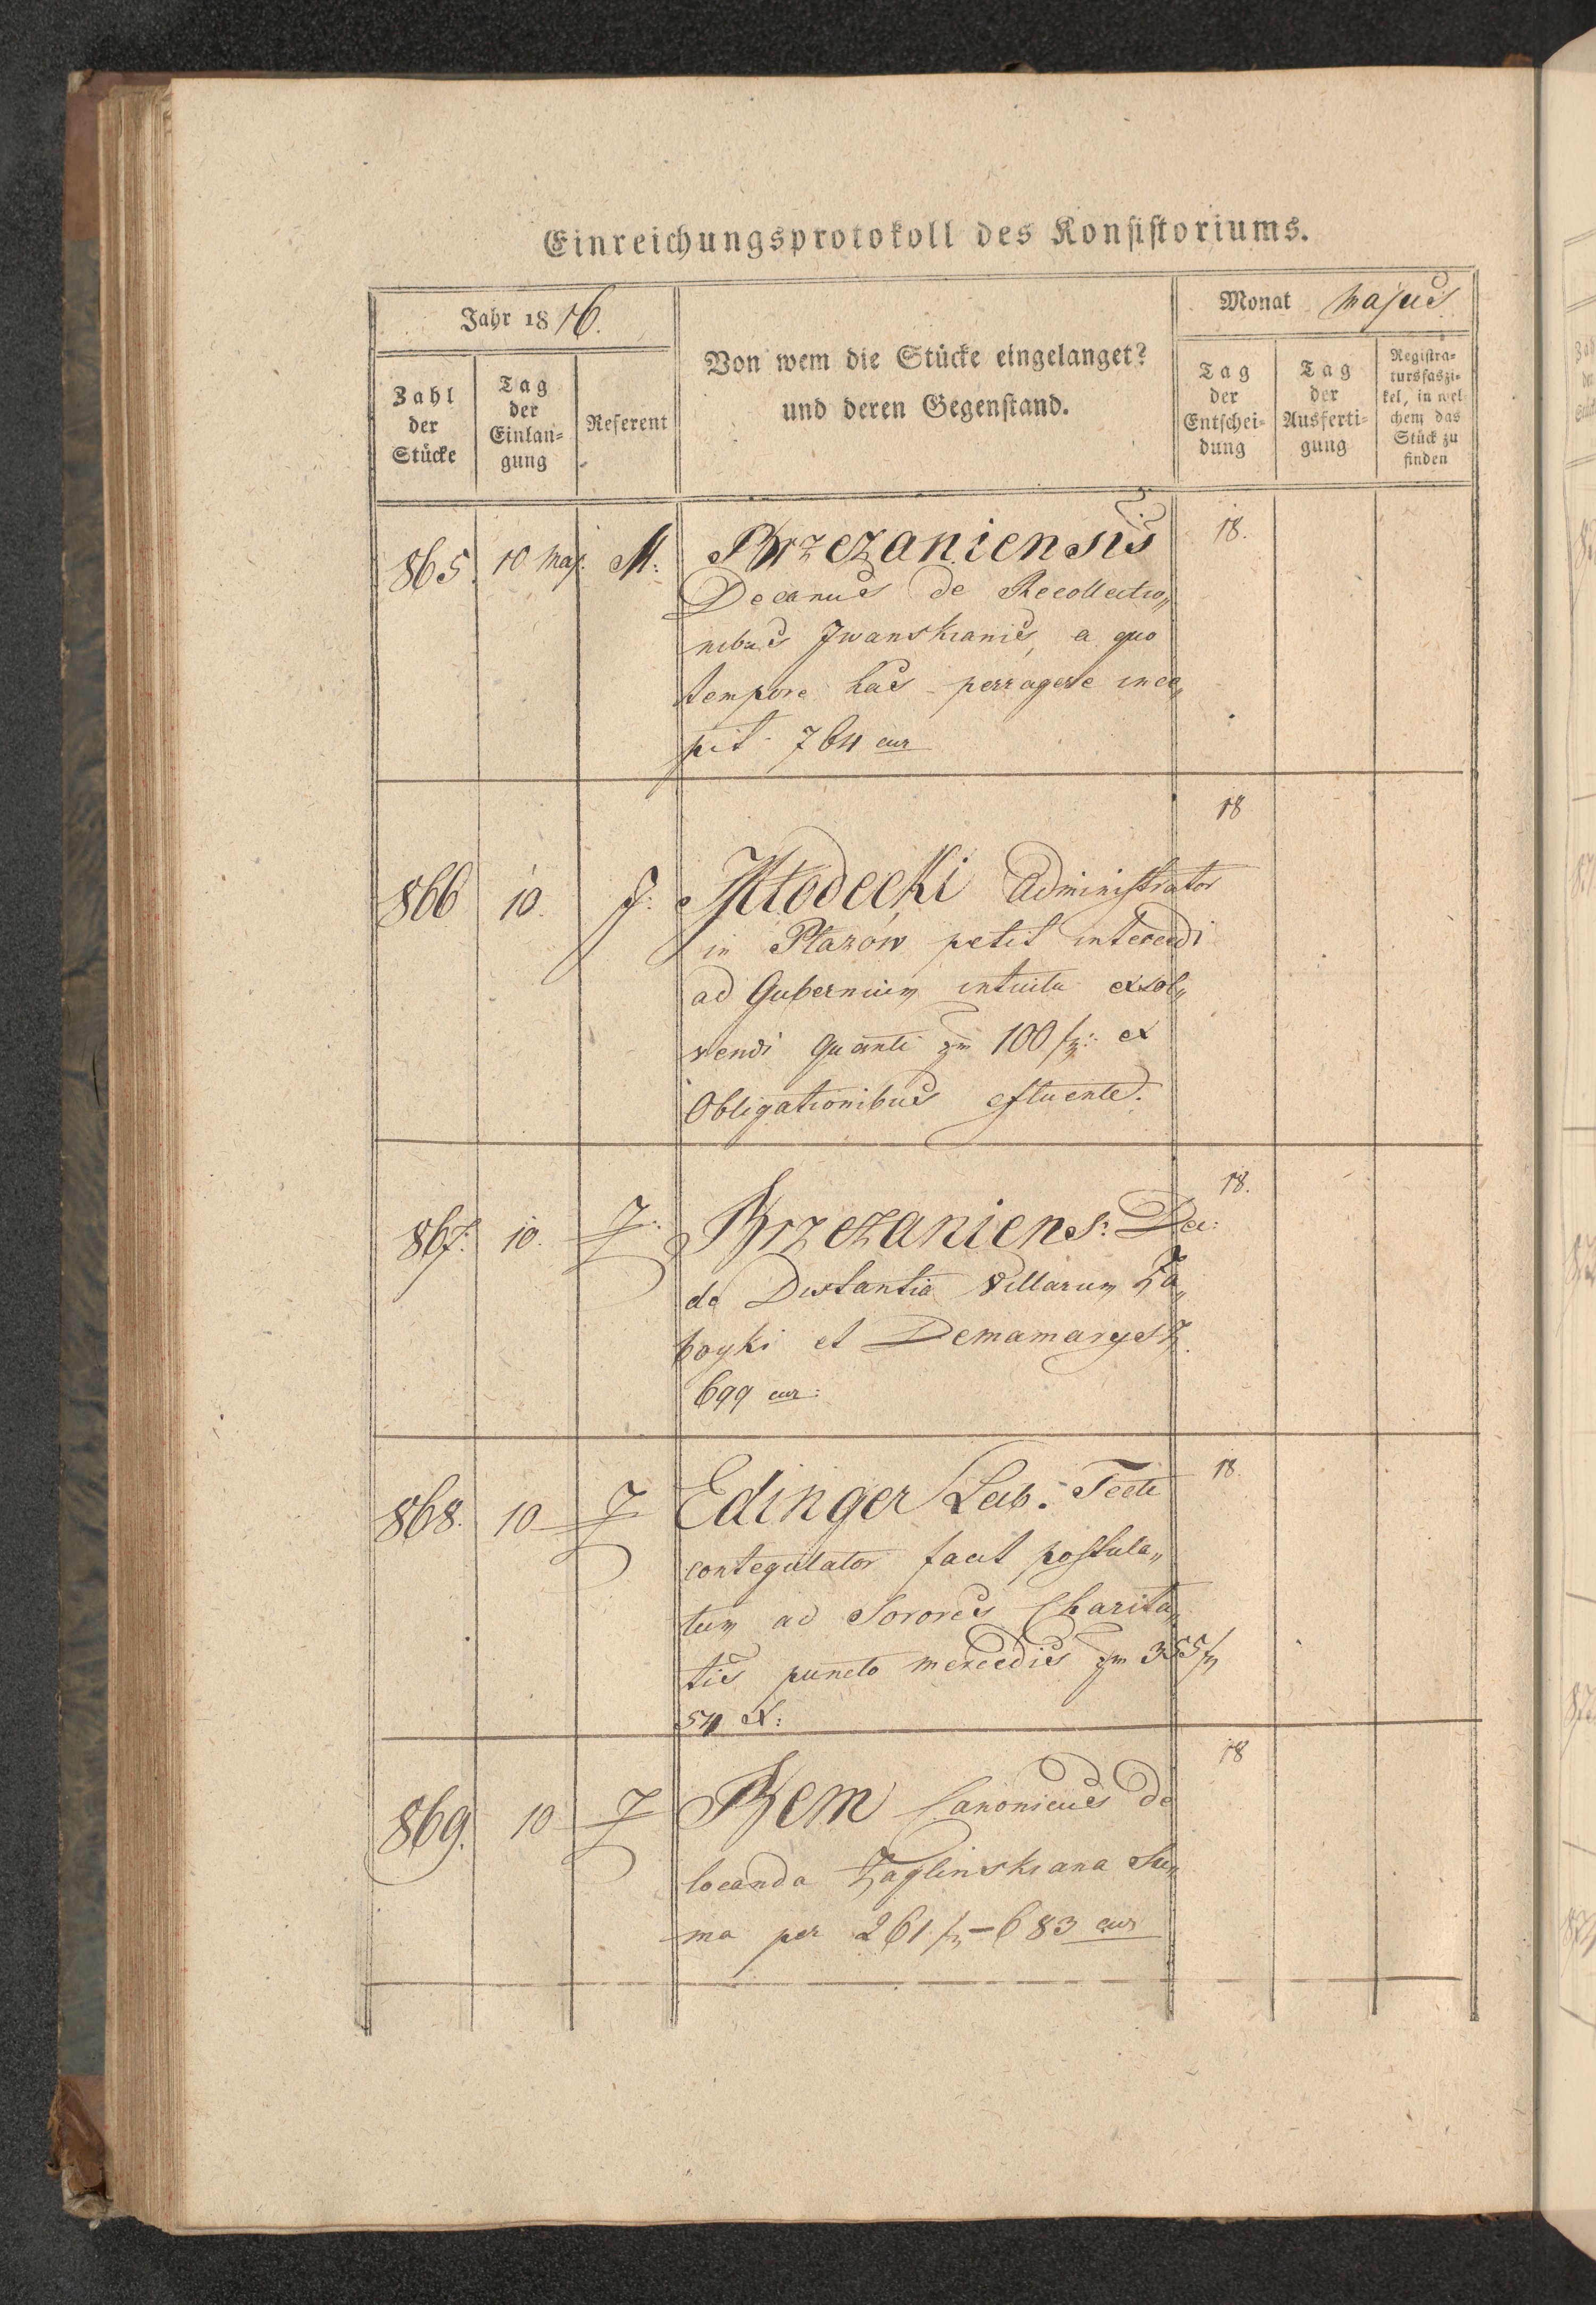 Einreichungsprotokoll des Konsistoriums.
Jahr 1816.
Monat Majus
Zahl der Stücke
Tag der Einlan=gung
Referent
Von wem die Stücke eingelanget?
und deren Gegenstand.
Tag der Entschei=dung
Tag der Ausferti=gung
Registra=tursfaszi=kel, in wel chem das Stück zu finden
865. 10 Maj. M: Brzezaniensis 18.
Decanus de Recollectio„
nibus Jwanskianis, a quo
tempore has perragere ince„
pit 764 cur
18
866 10. J: Kłodecki Administrator
in Płazow petit intercedi
ad Gubernium intuitu exsol„
vendi quanti 100 f: ex
Obligationibus efluente.
18.
867. 10. J: Brzezaniens: Dec:
de Distantia Villarum Za„
boyki et Demamarycz
699 cur:
868. 10 J Edinger Leib. Tecti 18.
contegulator facit postula„
tum ad Sorores Charita„
tis puncto mercedis 355 f
54 X:
18
869. 10 J Bem Canonicus de
locanda Zaglinskiana Su„
ma per 261 f – 683 cur